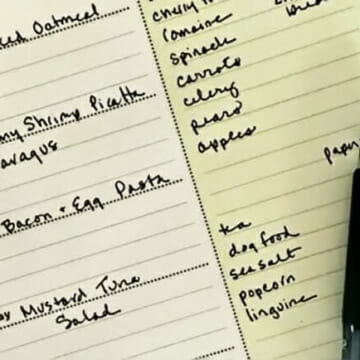 Oatmeal
Shrimp Picatta
Bacon + Egg Pasta
Mustard Tuna
Salad
cherry
romaine
spinach
carrots
celery
pears
apples
tea
dog food
sea salt
popcorn
linguine